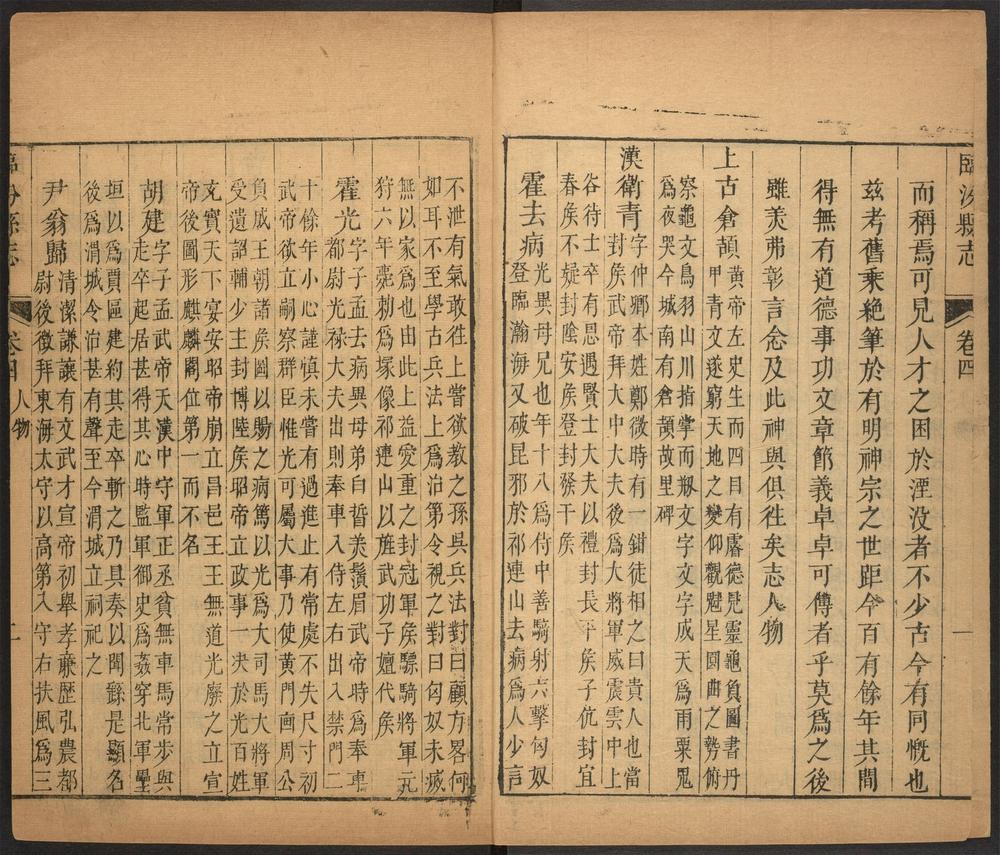 臨汾縣志
卷四
一
而稱焉可見人才之困於湮沒者不少古今有同慨也
茲考舊乘絕筆於有明神宗之世距今百有餘年其間
得無有道德事功文章節義卓卓可傳者乎莫爲之後
雖美弗彰言念及此神與俱徃矣志人物
上古倉頡
黃帝左史生而四目有睿德見靈龜負圖書丹
甲青文遂窮天地之變仰觀魁星圓曲之勢俯
察龜文鳥羽山川指掌而剏文字文字成天爲雨粟鬼
爲夜哭今城南有倉頡故里碑
漢衛青
字仲卿本姓鄭微時有一鉗徒相之曰貴人也當
封侯武帝拜大中大夫後爲大將軍威震雲中上
谷待士卒有恩遇賢士大夫以禮封長平侯子伉封宜
春侯不疑封陰安侯登封發干侯
霍去病
光異母兄也年十八爲侍中善騎射六擊匈奴
登臨瀚海又破昆邪於祁連山去病爲人少言
不泄有氣敢徃上嘗欲敎之孫吳兵法對曰顧方畧何
如耳不至學古兵法上爲治第令視之對曰匈奴未滅
無以家爲也由此上益愛重之封冠軍侯驃騎將軍元
狩六年薨勅爲塚像祁連山以旌武功子子嬗代侯
霍光
字子孟去病異母弟白晳美鬚眉武帝時爲奉車
都尉光祿大夫出則奉車入侍左右出入禁門二
十餘年小心謹愼未嘗有過進止有常處不失尺寸初
武帝欲立嗣察群臣惟光可屬大事乃使黃門画周公
負成王朝諸侯圖以賜之病篤以光爲大司馬大將軍
受遺詔輔少主封博陸侯昭帝立政事一决於光百姓
充實天下宴安昭帝崩立昌邑王王無道光廢之立宣
帝後圖形麒麟閣位第一而不名
胡建
字子孟武帝天漢中守軍正丞貧無車馬常步與
走卒起居甚得其心時監軍御史爲姦穿北軍壘
垣以爲賈區建約其走卒斬之乃具奏以聞繇是顯名
後爲渭城令治甚有聲至今渭城立祠祀之
尹翁歸
清潔謙讓有文武才宣帝初舉孝亷歴弘農都
尉後徵拜東海太守以高第入守右扶風爲三
臨汾縣志
卷四
人物
二